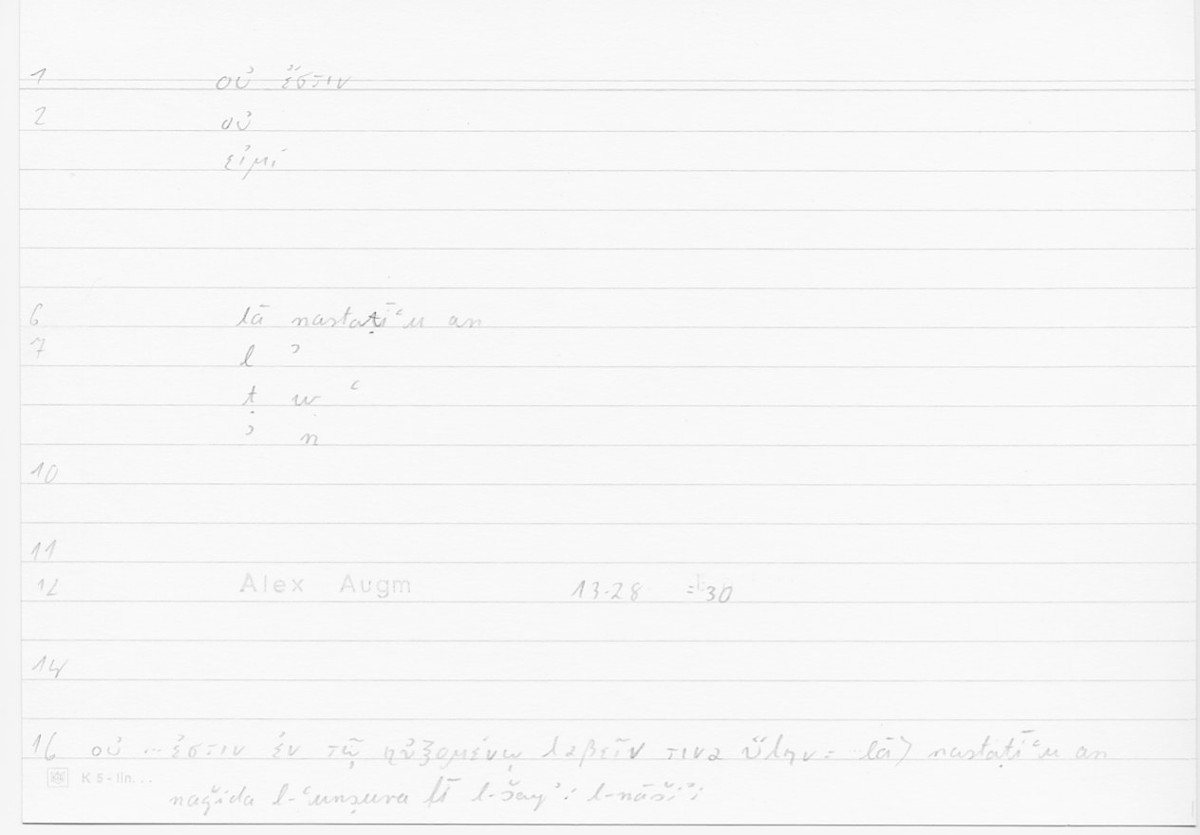 1 οὐ ἔστιν
2 οὐ
εἰμί
6 lā nastaṭīʿu an
7 l ʾ
ṭ w ʿ
ʾ n
10
11
12 Alex Augm 13.28 = 30
14
16 οὐ ... ἔστιν ἐν τῷ ηὐξημένῳ λαβεῖν τινα ὕλην = lā) nastaṭīʿu an
K 5 - lin. . .
naǧida l-ʿunṣura lī l-šayʾi l-nāšiʾi